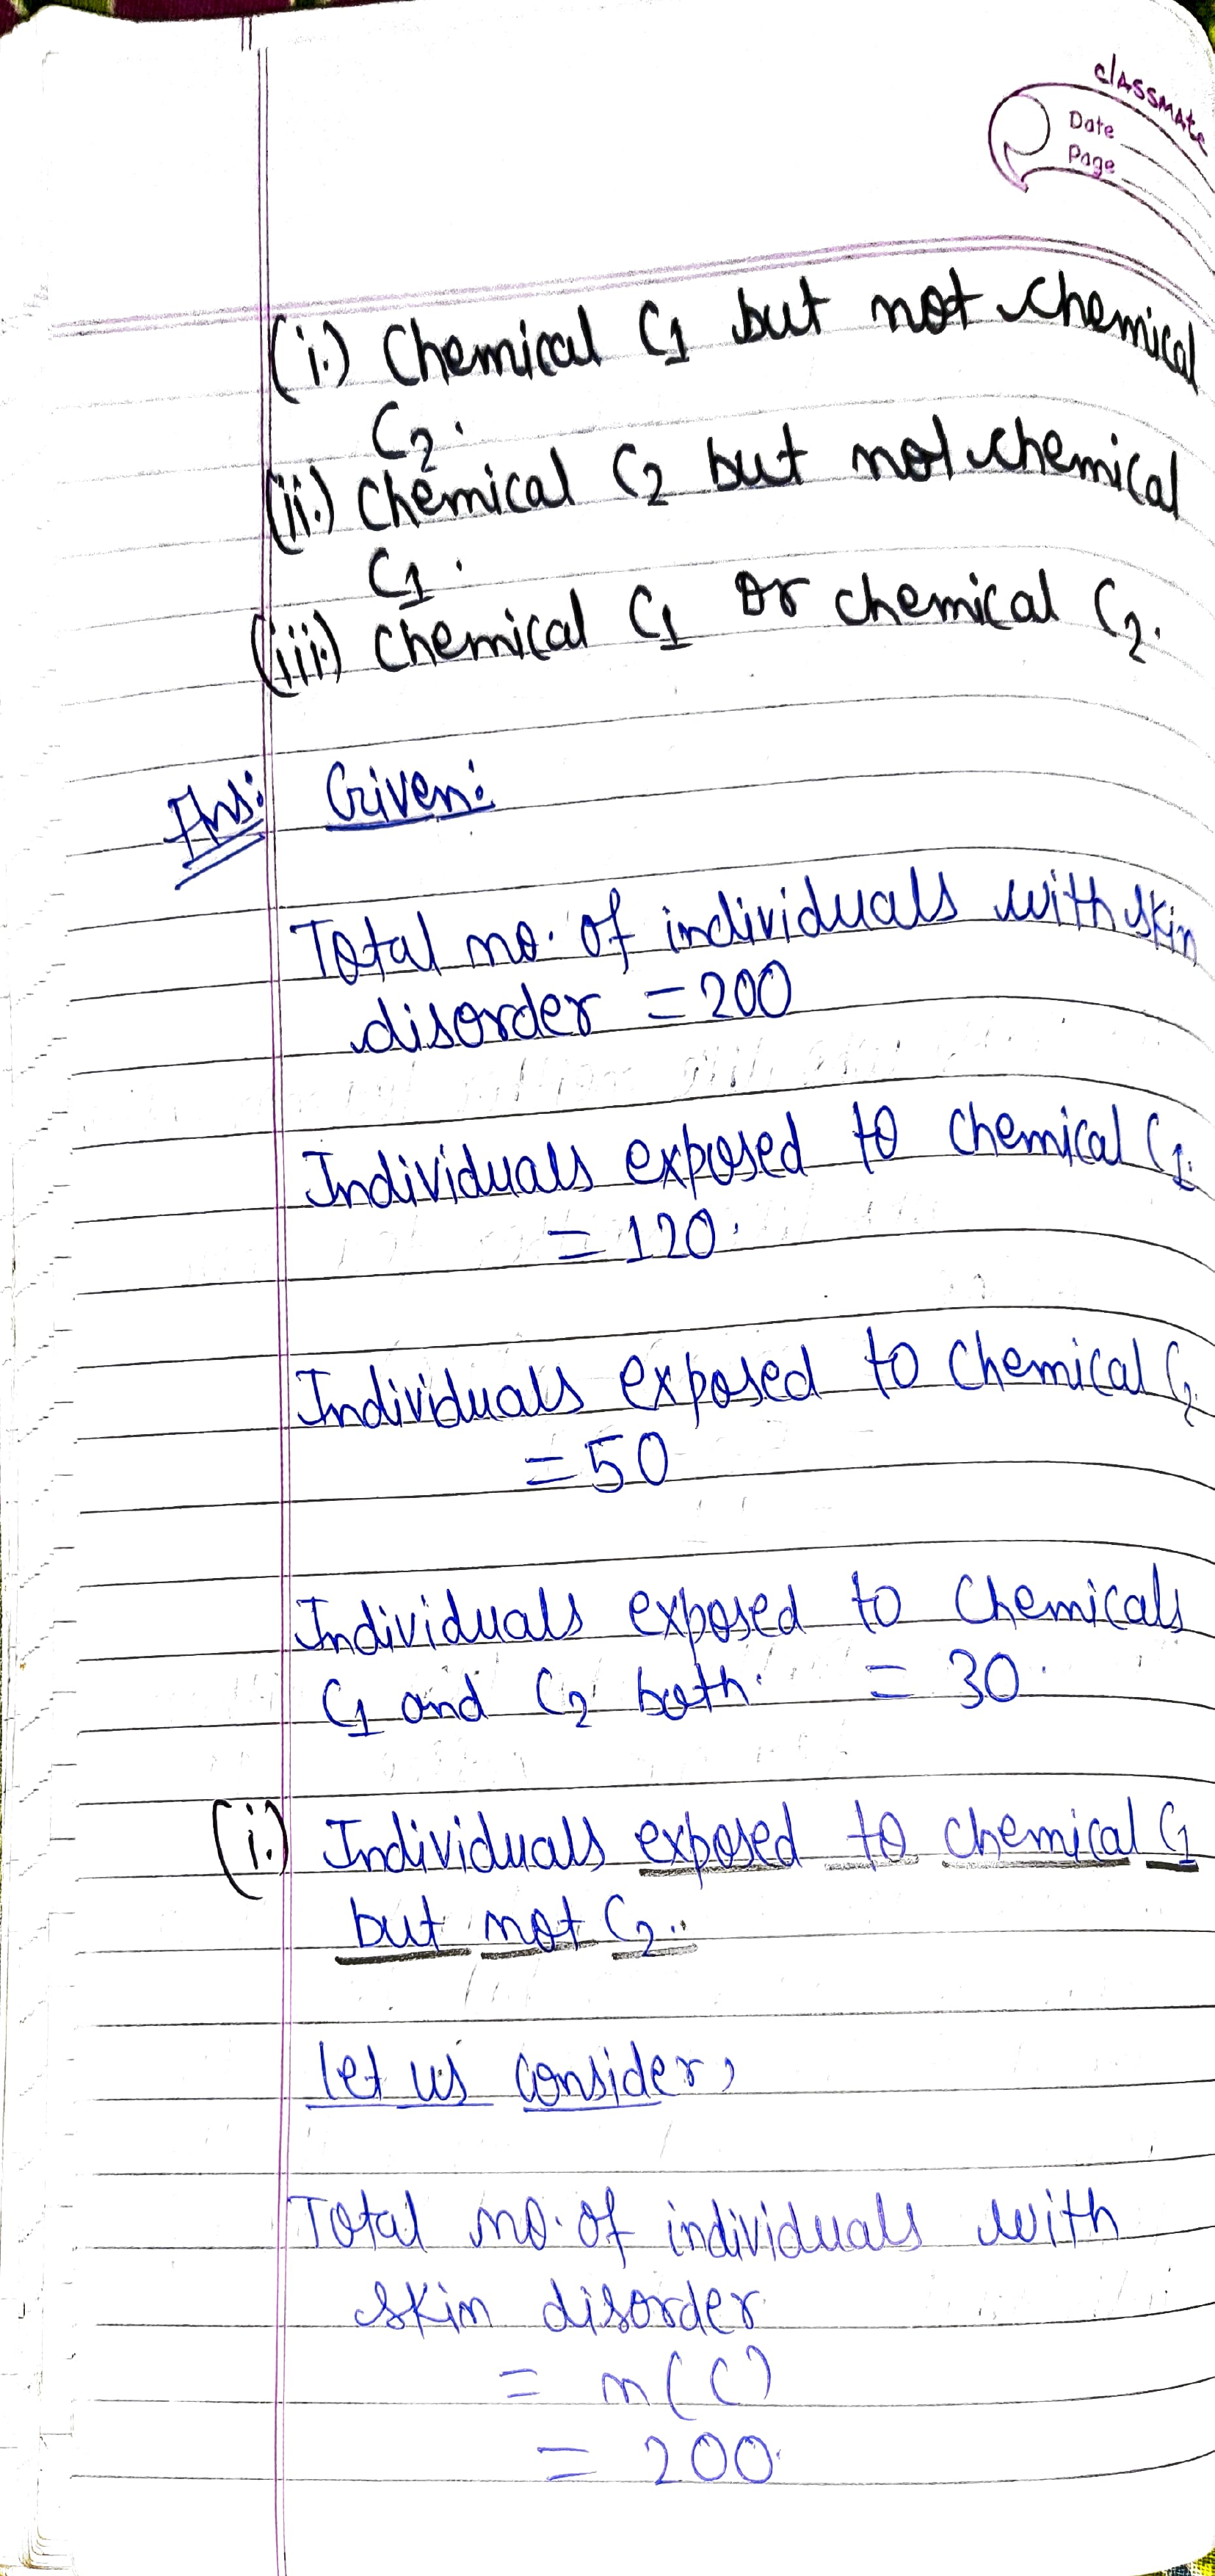 classmate
Date
Page
(i.) Chemical C1 but not chemical
C2.
(ii.) Chemical C2 but not chemical
C1.
(iii) Chemical C1 or chemical C2.
Ans: Given:
Total no. of individuals with skin
disorder = 200
Individuals exposed to chemical C1.
= 120.
Individuals exposed to chemical C2
= 50
Individuals exposed to chemicals
C1 and C2 both. = 30.
(i.) Individuals exposed to chemical C1
but not C2..
let us consider,
Total no. of individuals with
skin disorder
= n(C)
= 200.